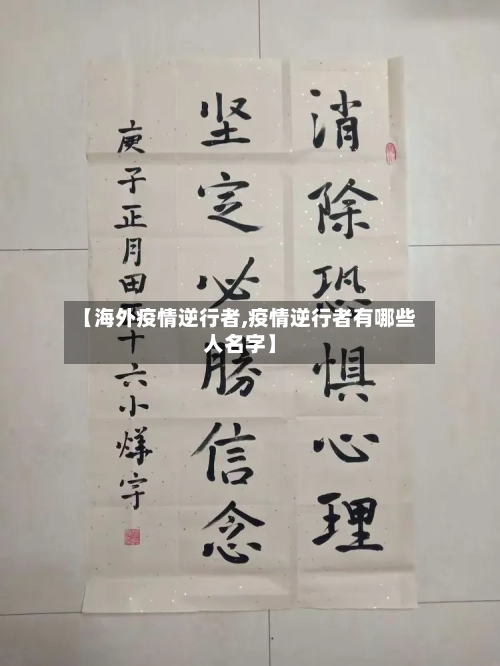 消除恐惧心理
坚定必勝信念
庚子正月田 十六小燁宇
【海外疫情逆行者,疫情逆行者有哪些
人名字】